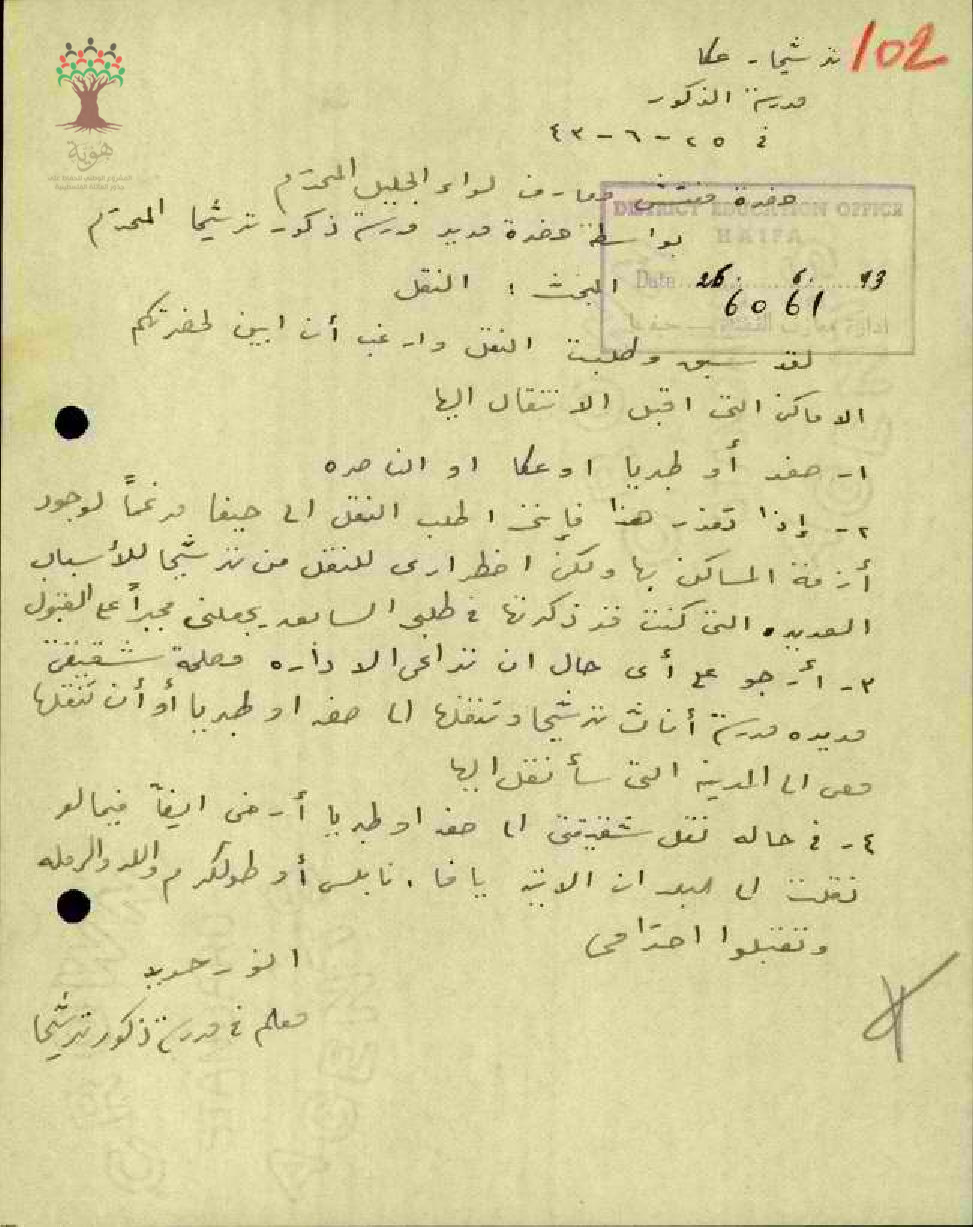 102
ترشيحا - عكا
مدرسة الذكور
في ٢٥ - ٦ - ٤٣
هوية
حضرة مفتش معارف لواء الجليل المحترم
DISTRICT EDUCATION OFFICE
HAIFA
بواسطة حضرة مدير مدرسة ذكور ترشيحا المحترم
Date 26. 6. 43
6061
البحث : النقل
لقد سبق وطلبت النقل وارغب أن ابين لحضرتكم
الاماكن التي اقبل الانتقال اليها
١- صفد أو طبريا او عكا او الناصره
٢- إذا تعذر هذا فإنني اطلب النقل الى حيفا مرغماً لوجود
أزمة المساكن بها ولكن اضطراري للنقل من ترشيحا للأسباب
العديده التي كنت قد ذكرتها في طلبي السابق يجعلني مجبراً على القبول
٣- أرجو على أي حال ان تراعى الاداره مصلحة شقيقتي
مديره مدرسة أناث ترشيحا وتنقلها الى صفد او طبريا أو أن تنقلها
معي الى المدينه التي سأنقل اليها
٤- في حاله نقل شقيقتي الى صفد او طبريا أرضى ايضاً فيما لو
نقلت الى البلدان الاتيه يافا ، نابلس أو طولكرم واللد والرمله
وتقبلوا احترامي
انور حديد
معلم في مدرسة ذكور ترشيحا